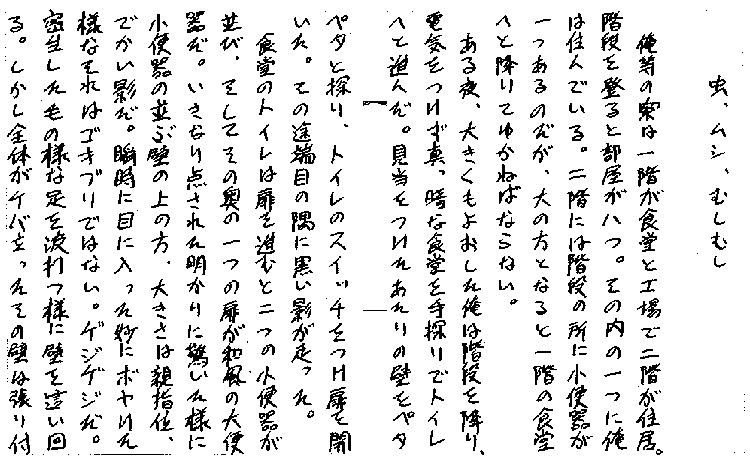 虫、ムシ、むしむし
俺等の寮は一階が食堂と工場で二階が住居。
階段を登ると部屋が八つ。その内の一つに俺
は住んでいる。二階には階段の所に小便器が
一つあるのだが、大の方となると一階の食堂
へと降りてゆかねばならない。
ある夜、大きくもよおした俺は階段を降り、
電気をつけず真、暗な食堂を手探りでトイレ
へと進んだ。見当をつけたあたりの壁をペタ
ペタと探り、トイレのスイッチをつけ扉を開
いた。その途端目の隅に黒い影が走った。
食堂のトイレは扉を進むと二つの小便器が
並び、そしてその奥の一つの扉が和風の大便
器だ。いきなり点された明かりに驚いた様に
小便器の並ぶ壁の上の方、大きさは親指位、
でかい影だ。瞬時に目に入った妙にボヤけた
様なそれはゴキブリではない。ゲジゲジだ。
密生した毛の様な足を波打つ様に壁を這い回
る。しかし全体がケバだったその壁は張り付